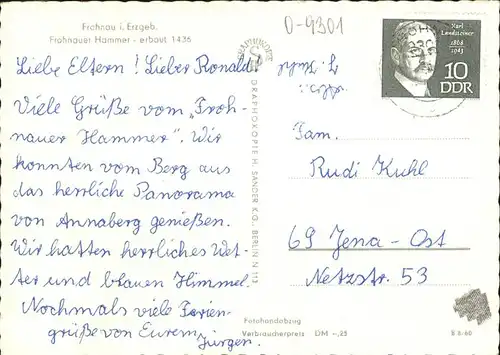 Frohnau i. Erzgeb.
Frohnauer Hammer - erbaut 1436
0-9301
Karl
Landsteiner
1868
1943
10
DDR
Liebe Eltern! Lieber Ronald!
Viele Grüße vom „Froh-
nauer Hammer". Wir
konnten vom Berg aus
das herrliche Panorama
von Annaberg genießen.
Wir hatten herrliches Wet-
ter und blauen Himmel.
Nochmals viele Ferien-
grüße von Eurem Jürgen.
GRAPHOKOPIE H. SANDER K.G., BERLIN N 113
Fam.
Rudi Kuhl
69 Jena-Ost
Netzstr. 53
Fotohandabzug
Verbraucherpreis DM -,25